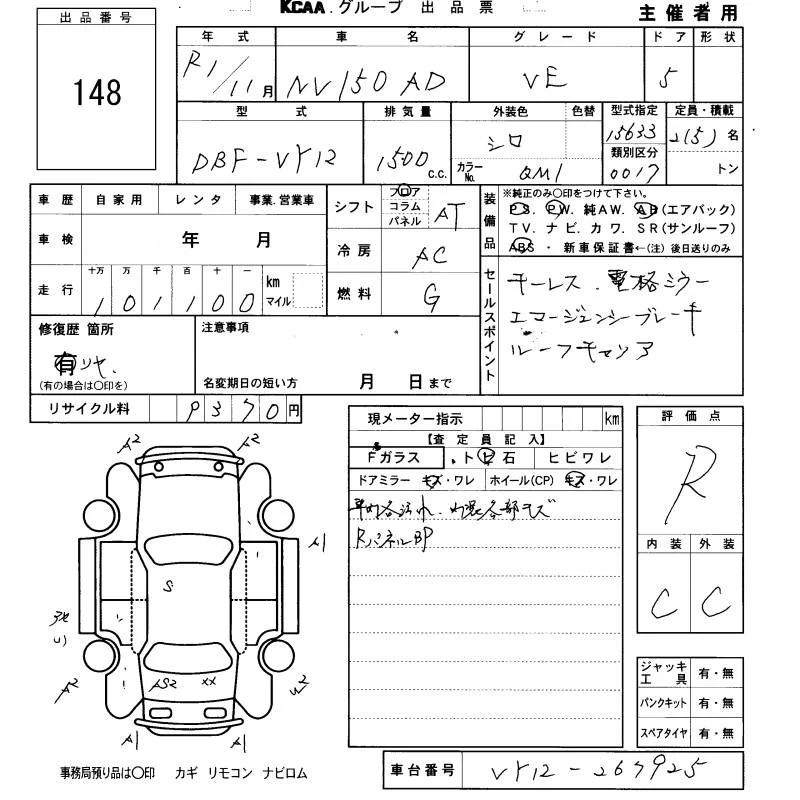 KCAA.グループ 出品票
主催者用
出品番号
148
年式 車名 グレード ドア 形状
R1/11月 NV150 AD VE 5
型式 排気量 外装色 色替 型式指定 定員・積載
DBF-VY12 1500 C.C. シロ 15633 2(5)名
カラーNo. QM1 類別区分 0017 トン
車歴 自家用 レンタ 事業.営業車
車検 年 月
走行 十万 万 千 百 十 一 km マイル
101100
シフト フロア コラム パネル AT
冷房 AC
燃料 G
装備品 ※純正のみ○印をつけて下さい。
PS. PW. 純AW. AB(エアバック)
TV. ナビ. カワ. SR(サンルーフ)
ABS・新車保証書←(注)後日送りのみ
セールスポイント
キーレス. 電格ミラー
エマージェンシーブレーキ
ルーフキャリア
修復歴 箇所
有 リヤ.
(有の場合は○印を)
注意事項
名変期日の短い方 月 日まで
リサイクル料 9370円
現メーター指示 km
【査定員記入】
Fガラス .トビ石 ヒビワレ
ドアミラー キズ・ワレ ホイール(CP) キズ・ワレ
車内各汚れ. 内装各部キズ
RパネルBP
評価点
R
内装 外装
C C
ジャッキ工具 有・無
パンクキット 有・無
スペアタイヤ 有・無
A2 A2
A1
S
A2 W2
AS2 XX
A1 A1
事務局預り品は○印 カギ リモコン ナビロム
車台番号 VY12-267925